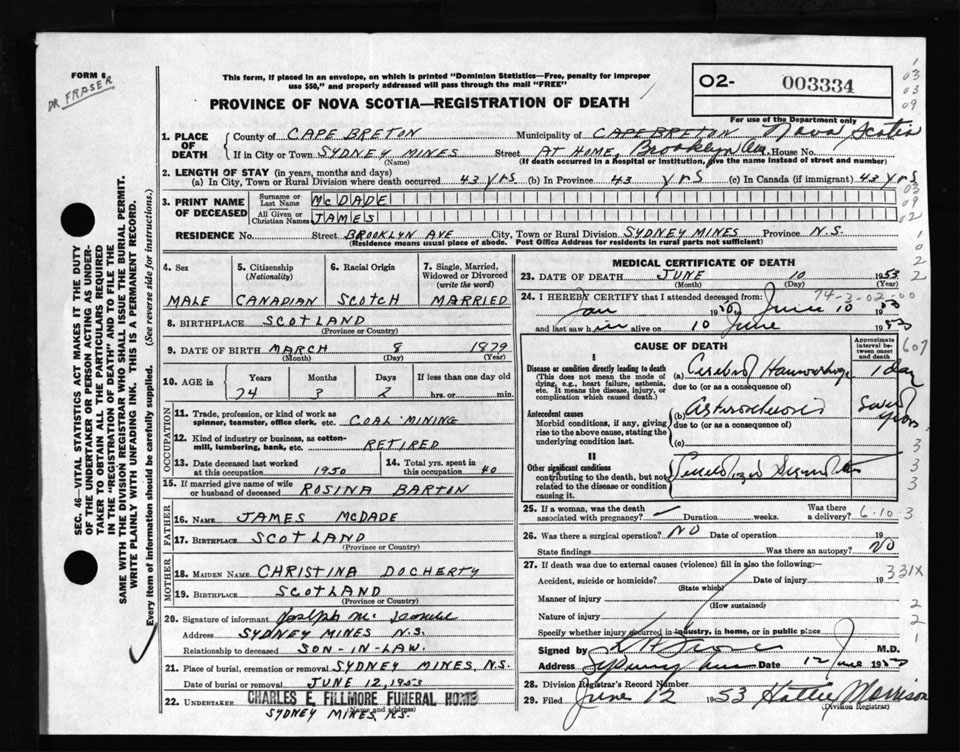 FORM 6
DR FRASER
This form, if placed in an envelope, on which is printed "Dominion Statistics—Free, penalty for improper
use $50," and properly addressed will pass through the mail "FREE"
PROVINCE OF NOVA SCOTIA—REGISTRATION OF DEATH
02- 003334
For use of the Department only
1. PLACE OF DEATH
County of CAPE BRETON Municipality of CAPE BRETON Nova Scotia
If in City or Town SYDNEY MINES Street AT HOME, Brooklyn Ave. House No.
(Name) (If death occurred in a Hospital or Institution, give the name instead of street and number)
2. LENGTH OF STAY (in years, months and days)
(a) In City, Town or Rural Division where death occurred 43 yrs (b) In Province 43 yrs (c) In Canada (if immigrant) 43 yrs
3. PRINT NAME OF DECEASED
Surname or Last Name McDADE
All Given or Christian Names JAMES
RESIDENCE No. Street BROOKLYN AVE City, Town or Rural Division SYDNEY MINES Province N.S.
(Residence means usual place of abode. Post Office Address for residents in rural parts not sufficient)
4. Sex
MALE
5. Citizenship (Nationality)
CANADIAN
6. Racial Origin
SCOTCH
7. Single, Married, Widowed or Divorced (write the word)
MARRIED
8. BIRTHPLACE SCOTLAND
(Province or Country)
9. DATE OF BIRTH MARCH 8 1879
(Month) (Day) (Year)
10. AGE in Years Months Days If less than one day old
74 3 2 hrs. or min.
OCCUPATION
11. Trade, profession, or kind of work as
spinner, teamster, office clerk, etc. COAL MINING
12. Kind of industry or business, as cotton-
mill, lumbering, bank, etc. RETIRED
13. Date deceased last worked at this occupation 1950
14. Total yrs. spent in this occupation 40
15. If married give name of wife
or husband of deceased ROSINA BARTON
FATHER
16. NAME JAMES McDADE
17. BIRTHPLACE SCOTLAND
(Province or Country)
MOTHER
18. MAIDEN NAME CHRISTINA DOCHERTY
19. BIRTHPLACE SCOTLAND
(Province or Country)
20. Signature of informant Joseph
Address SYDNEY MINES N.S.
Relationship to deceased SON-IN-LAW.
21. Place of burial, cremation or removal SYDNEY MINES, N.S.
Date of burial or removal JUNE 12, 1953
22. UNDERTAKER CHARLES E. FILLMORE FUNERAL HOME
SYDNEY MINES, N.S.
(Name and address)
MEDICAL CERTIFICATE OF DEATH
23. DATE OF DEATH JUNE 10 1953
(Month) (Day) (Year)
74-3-02-00
24. I HEREBY CERTIFY that I attended deceased from:
Jan 1950 to June 10 1953
and last saw him alive on 10 June 1953
CAUSE OF DEATH
Approximate interval between onset and death
I
Disease or condition directly leading to death
(This does not mean the mode of
dying, e.g., heart failure, asthenia,
etc. It means the disease, injury, or
complication which caused death.)
(a) Cerebral Haemorrhage 1 day
due to (or as a consequence of)
Antecedent causes
Morbid conditions, if any, giving
rise to the above cause, stating the
underlying condition last.
(b) Arteriosclerosis Several years
due to (or as a consequence of)
(c)
II
Other significant conditions
contributing to the death, but not
related to the disease or condition
causing it.
25. If a woman, was the death
associated with pregnancy? — Duration weeks. Was there a delivery? 6-10-3
26. Was there a surgical operation? NO Date of operation 19
State findings Was there an autopsy? NO
27. If death was due to external causes (violence) fill in also the following:
Accident, suicide or homicide? Date of injury 19 331X
(State which)
Manner of injury
(How sustained)
Nature of injury
Specify whether injury occurred in industry, in home, or in public place
Signed by M.D.
Address Sydney Mines Date 12 June 1953
28. Division Registrar's Record Number
29. Filed June 12 1953 Hattie Morrison
(Division Registrar)
SEC. 46—VITAL STATISTICS ACT MAKES IT THE DUTY
OF THE UNDERTAKER OR PERSON ACTING AS UNDER-
TAKER TO OBTAIN ALL THE PARTICULARS REQUIRED
IN THE "REGISTRATION OF DEATH" AND TO FILE THE
SAME WITH THE DIVISION REGISTRAR WHO SHALL ISSUE THE BURIAL PERMIT.
WRITE PLAINLY WITH UNFADING INK. THIS IS A PERMANENT RECORD.
Every item of information should be carefully supplied. (See reverse side for instructions.)
1
03
03
09
03
09
02
1
0
2
2
607
3
3
3
2
2
1